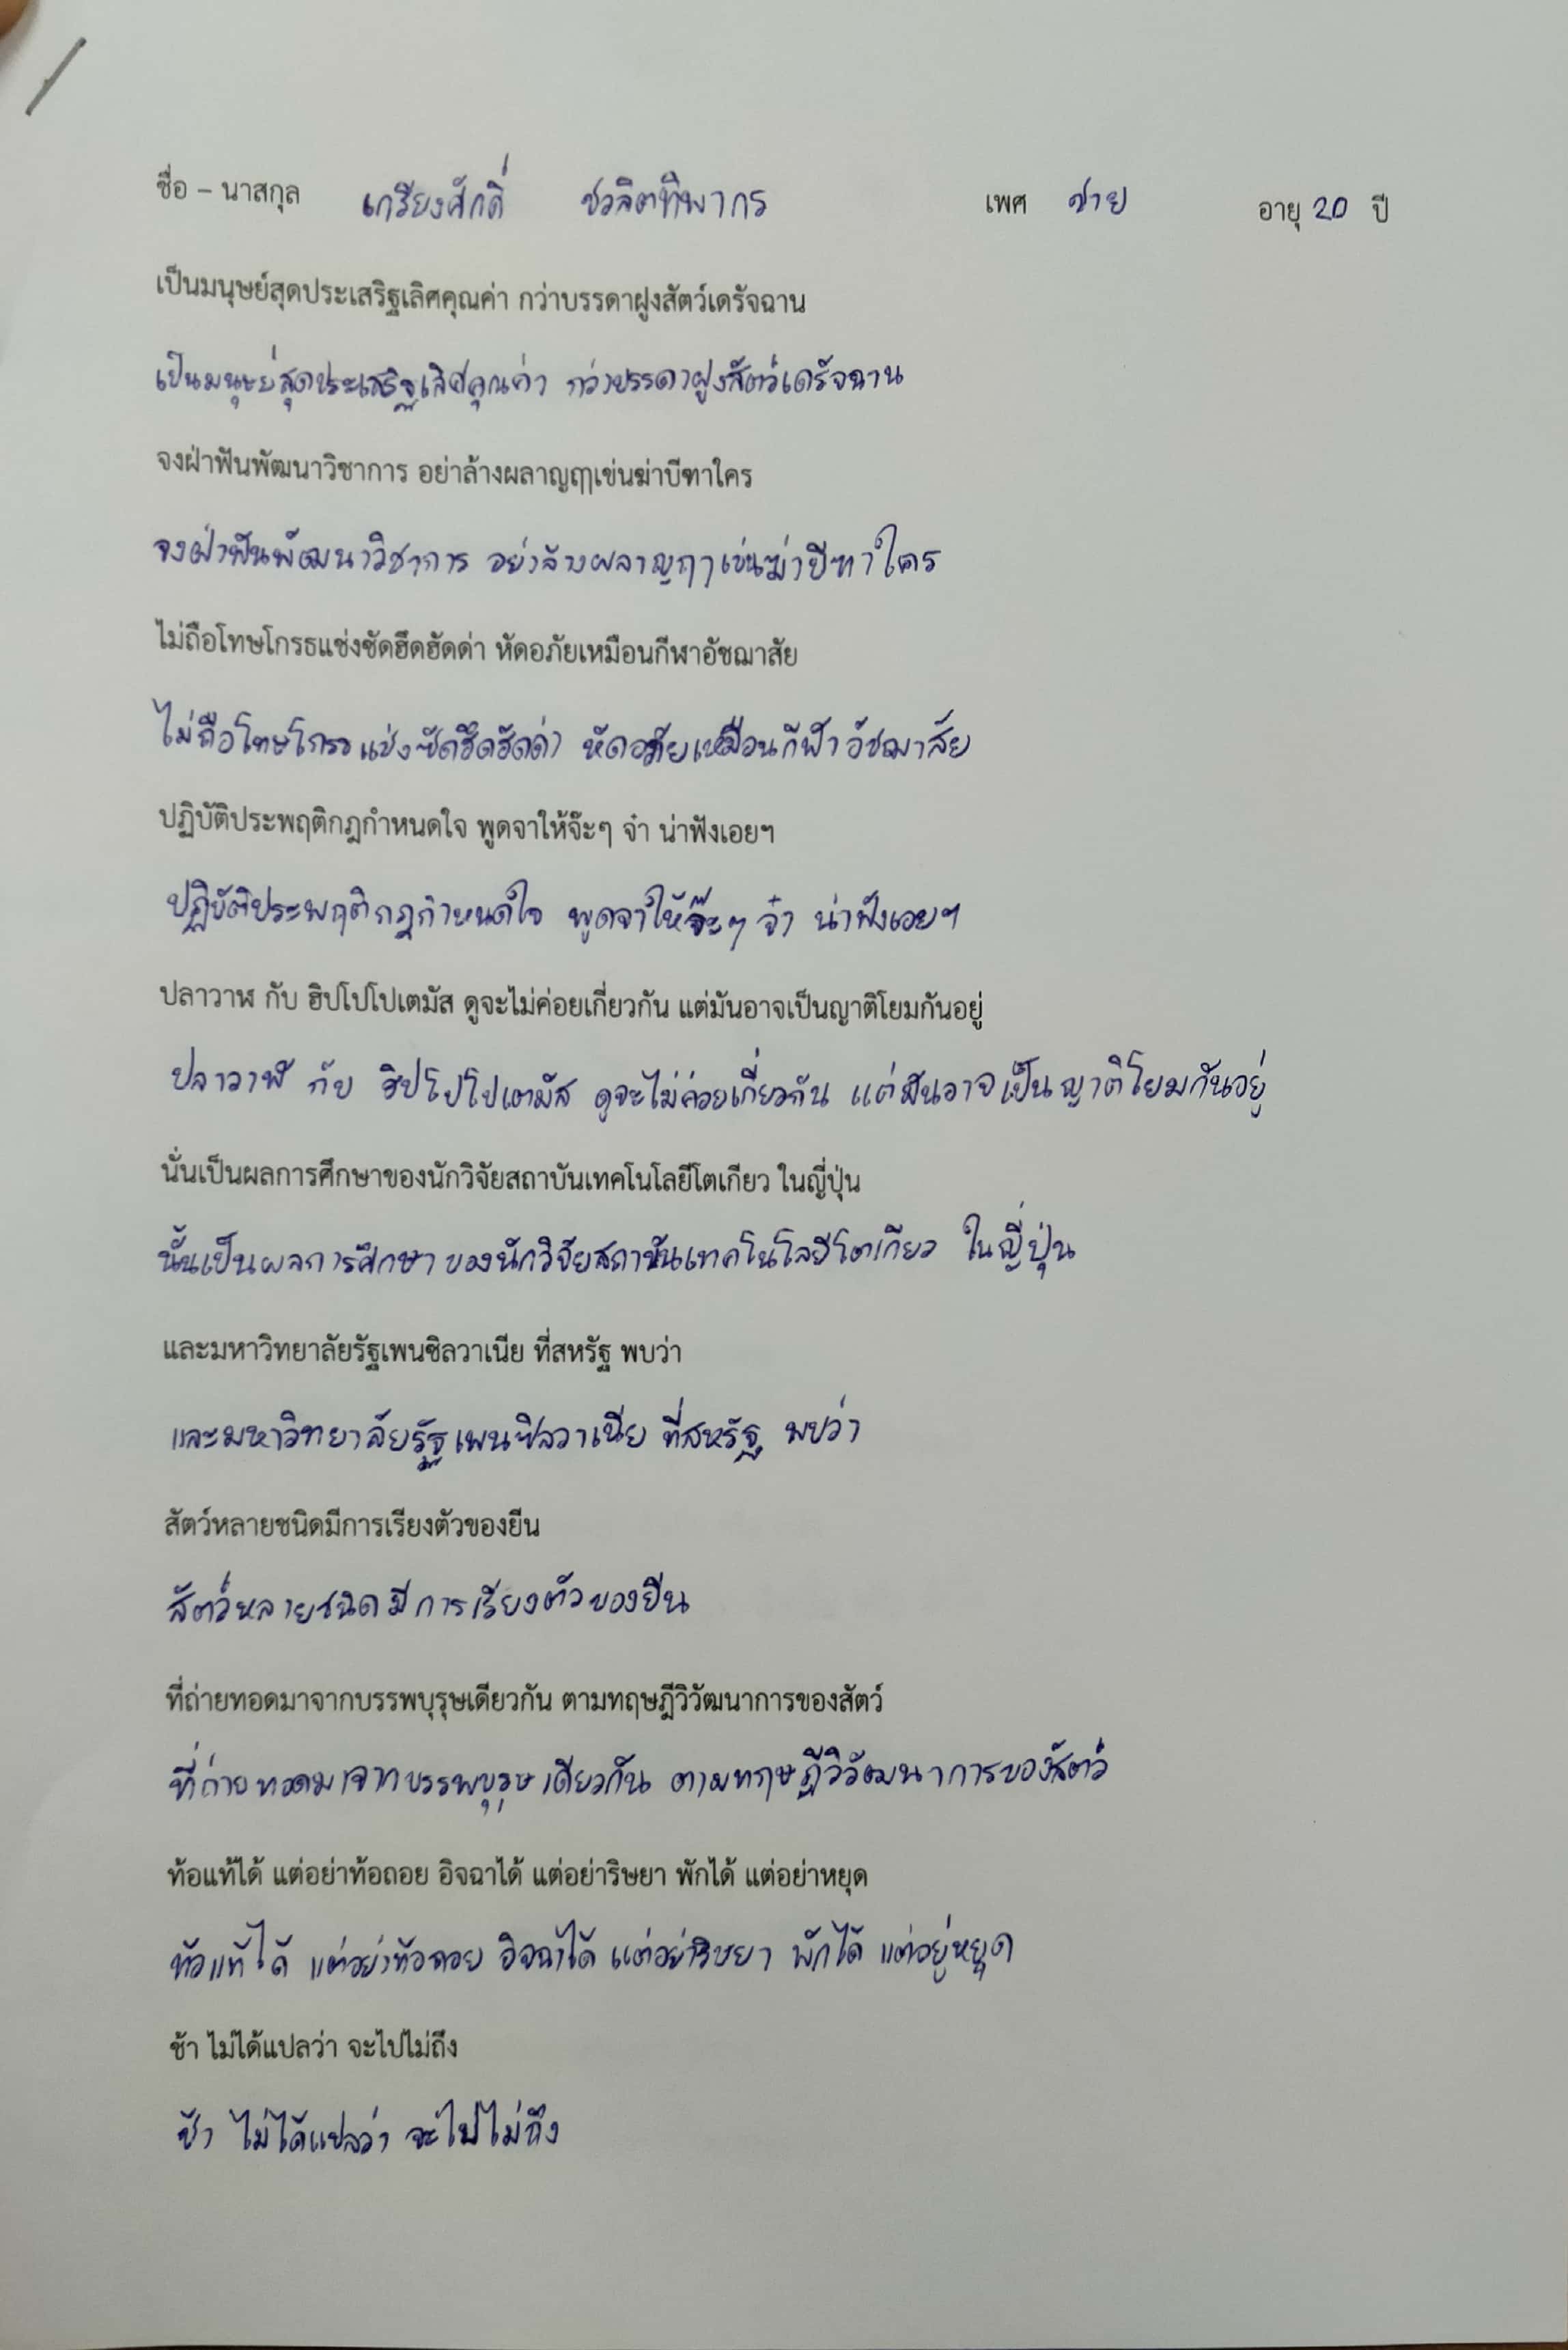 ชื่อ – นาสกุล เกรียงศักดิ์ ชวลิตทิพากร เพศ ชาย อายุ 20 ปี
เป็นมนุษย์สุดประเสริฐเลิศคุณค่า กว่าบรรดาฝูงสัตว์เดรัจฉาน
เป็นมนุษย์สุดประเสริฐเลิศคุณค่า กว่าบรรดาฝูงสัตว์เดรัจฉาน
จงฝ่าฟันพัฒนาวิชาการ อย่าล้างผลาญฤๅเข่นฆ่าบีฑาใคร
จงฝ่าฟันพัฒนาวิชาการ อย่าล้างผลาญฤๅเข่นฆ่าบีฑาใคร
ไม่ถือโทษโกรธแช่งซัดฮึดฮัดด่า หัดอภัยเหมือนกีฬาอัชฌาสัย
ไม่ถือโทษโกรธแช่งซัดฮึดฮัดด่า หัดอภัยเหมือนกีฬาอัชฌาสัย
ปฏิบัติประพฤติกฎกำหนดใจ พูดจาให้จ๊ะๆ จ๋า น่าฟังเอยฯ
ปฏิบัติประพฤติกฎกำหนดใจ พูดจาให้จ๊ะๆ จ๋า น่าฟังเอยฯ
ปลาวาฬ กับ ฮิปโปโปเตมัส ดูจะไม่ค่อยเกี่ยวกัน แต่มันอาจเป็นญาติโยมกันอยู่
ปลาวาฬ กับ ฮิปโปโปเตมัส ดูจะไม่ค่อยเกี่ยวกัน แต่มันอาจเป็นญาติโยมกันอยู่
นั่นเป็นผลการศึกษาของนักวิจัยสถาบันเทคโนโลยีโตเกียว ในญี่ปุ่น
นั้นเป็นผลการศึกษาของนักวิจัยสถาบันเทคโนโลยีโตเกียว ในญี่ปุ่น
และมหาวิทยาลัยรัฐเพนซิลวาเนีย ที่สหรัฐ พบว่า
และมหาวิทยาลัยรัฐเพนซิลวาเนีย ที่สหรัฐ พบว่า
สัตว์หลายชนิดมีการเรียงตัวของยีน
สัตว์หลายชนิดมีการเรียงตัวของยีน
ที่ถ่ายทอดมาจากบรรพบุรุษเดียวกัน ตามทฤษฎีวิวัฒนาการของสัตว์
ที่ถ่ายทอดมาจากบรรพบุรุษเดียวกัน ตามทฤษฎีวิวัฒนาการของสัตว์
ท้อแท้ได้ แต่อย่าท้อถอย อิจฉาได้ แต่อย่าริษยา พักได้ แต่อย่าหยุด
ท้อแท้ได้ แต่อย่าท้อถอย อิจฉาได้ แต่อย่าริษยา พักได้ แต่อยู่หยุด
ช้า ไม่ได้แปลว่า จะไปไม่ถึง
ช้า ไม่ได้แปลว่า จะไปไม่ถึง